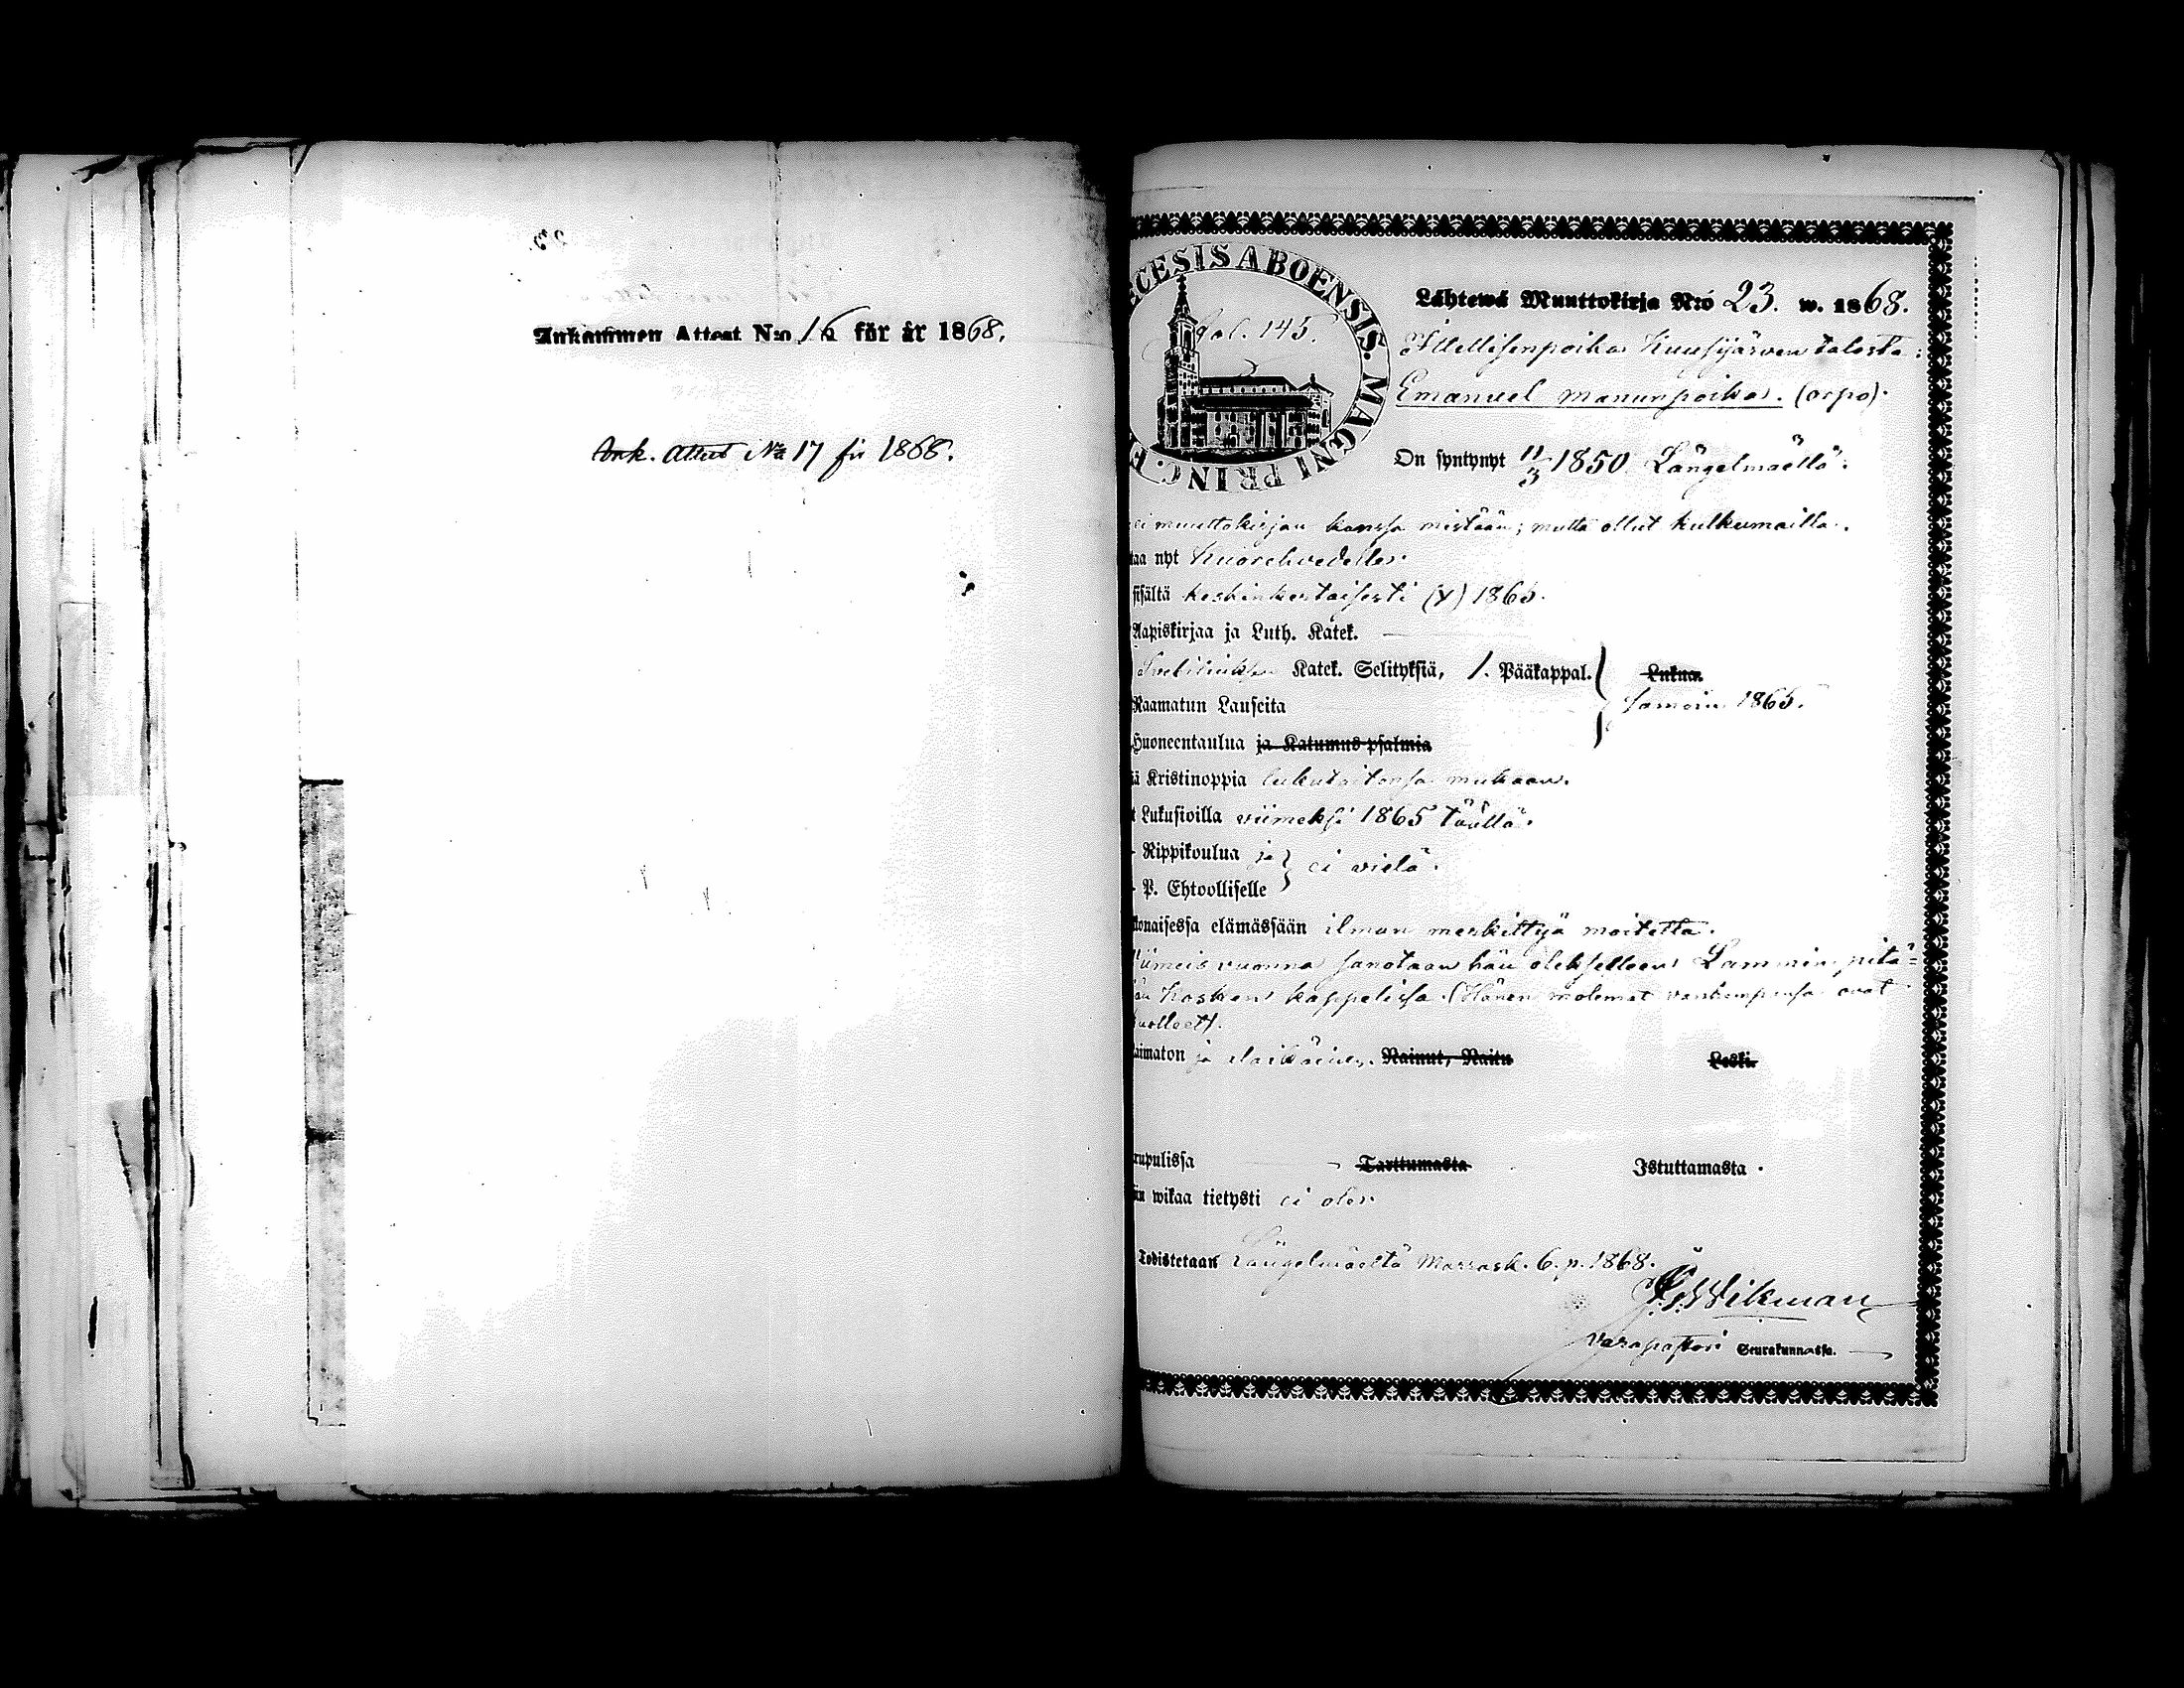 Ankommen Attest N:o 16 för år 1868.
Ank. Attest No 17 för 1868.
ECESIS ABOENSIS. MAGNI PRINC. F
Fol. 145.
Lähtewä Muuttokirja N:o 23. w. 1868.
Itellisenpoika Kuusijärven talosta:
Emanuel Manunpoika. (orpo).
On syntynyt 11/3 1850 Längelmäellä.
ei muuttokirjan kanssa mistään; mutta ollut kulkumailla.
taa nyt Kuorehvedelle.
sisältä keskinkertaisesti (x) 1865.
Aapiskirjaa ja Luth. Katek.
Katek. Selityksiä, 1. Pääkappal. Lukua.
Raamatun Lauseita samoin 1865.
Huoneentaulua ja Katumus-psalmia
ä Kristinoppia lukutaitonsa mukaan.
t Lukusioilla viimeksi 1865 täällä.
Rippikoulua ja ei vielä.
P. Ehtoolliselle
onaisessa elämässään ilman merkittyjä moitetta.
Viimeis vuonna sanotaan hän olekselleen Lammin pitä=
än Kosken kappelissa. (Hänen molemat vanhempansa ovat
kuolleet).
aimaton ja alaikäinen. Nainut, Naitu Leski.
rupulissa Tarttumasta Istuttamasta.
än wikaa tietysti ei ole.
Todistetaan Längelmäeltä Marrask. 6. p. 1868.
Wikman
varapastori Seurakunnassa.